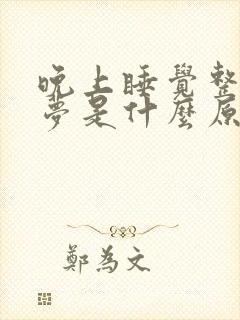 晚上睡覺整
夢是什麼原
鄭為文